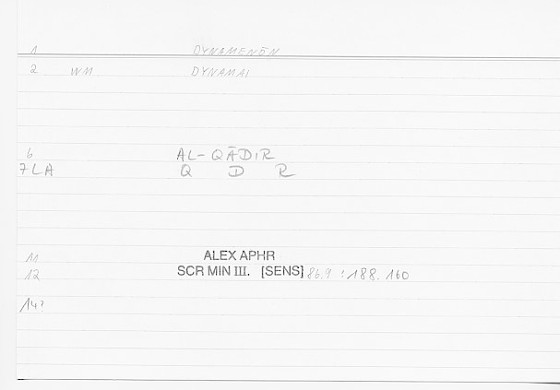 1 DYNAMENĒN
2 WM DYNAMAI
6 AL-QĀDIR
7LA Q D R
11 ALEX APHR
12 SCR MIN III. [SENS] 86.9 : 188.160
14?